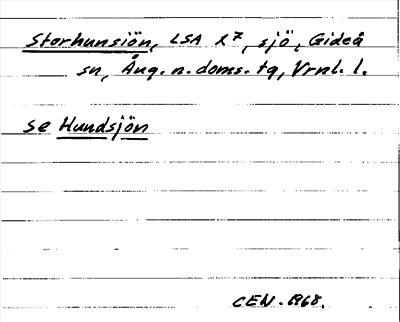 Storhunsiön, LSA L7, sjö, Gideå
sn, Ång. n. doms. tg, Vrnl. l.
se Hundsjön
CEN. 1968.